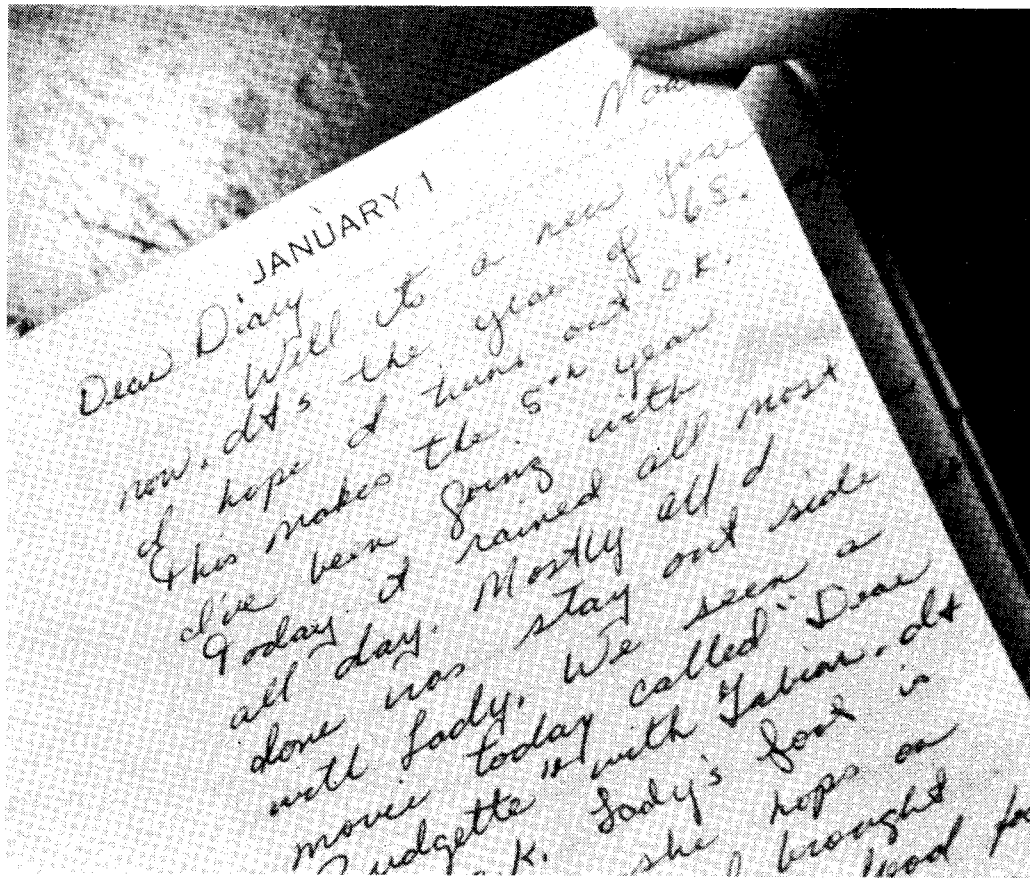 JANUARY 1
Dear Diary
Well to a new year
now. It's the year of 65.
I hope it turns out OK.
This makes the 5th year
I've been going with
Today it rained all most
all day. Mostly all I
done was stay out side
with Lady. We seen a
movie today called "Dear
Brigitte" with Fabian. It
K. Lady's foot is
she hops on
brought